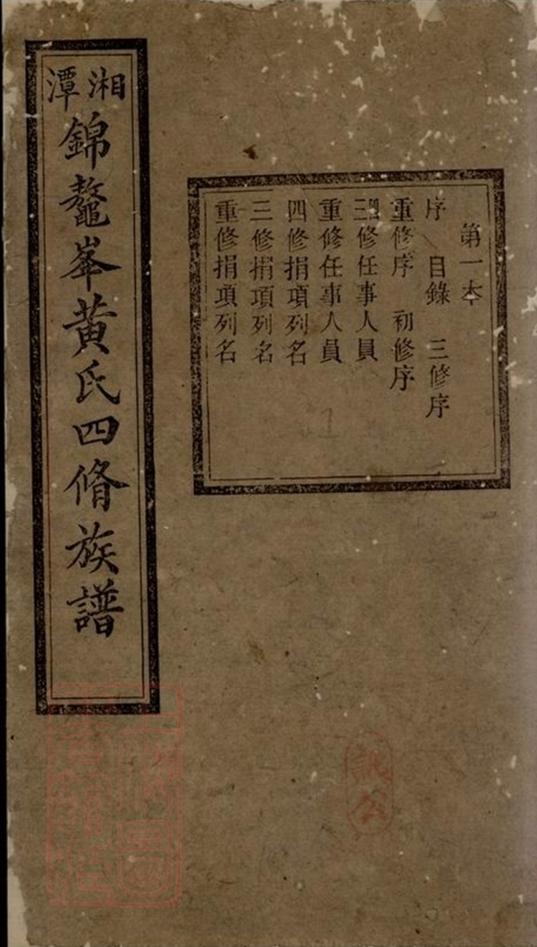 湘潭
錦鼇峯黃氏四脩族譜
第一本
序 目錄 三修序
重修序 初修序
三四修任事人員
重修任事人員
四修捐項列名
三修捐項列名
重修捐項列名
公